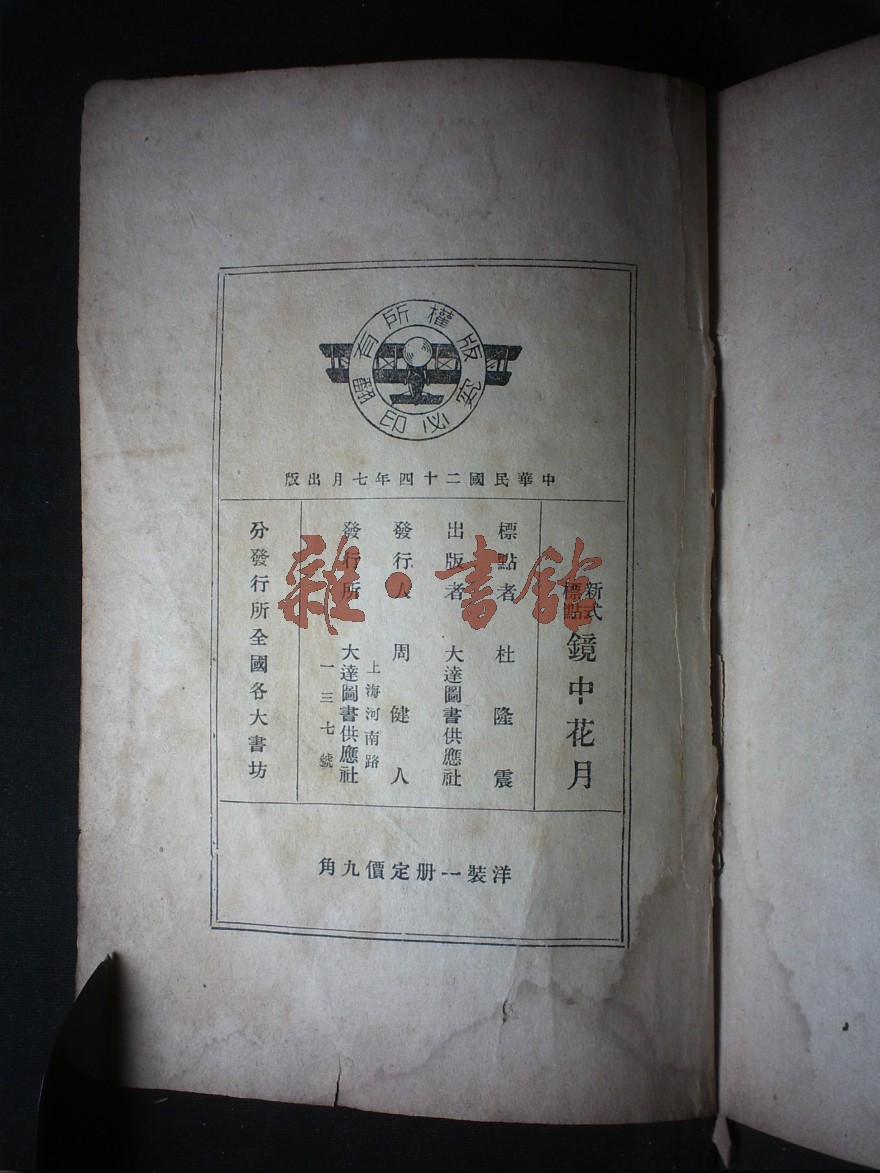 版權所有
翻印必究
中華民國二十四年七月出版
新式標點 鏡中花月
標點者 杜隆震
出版者 大達圖書供應社
發行人 周健人
上海河南路
發行所 大達圖書供應社
一三七號
分發行所全國各大書坊
洋裝一册定價九角
雜·書館